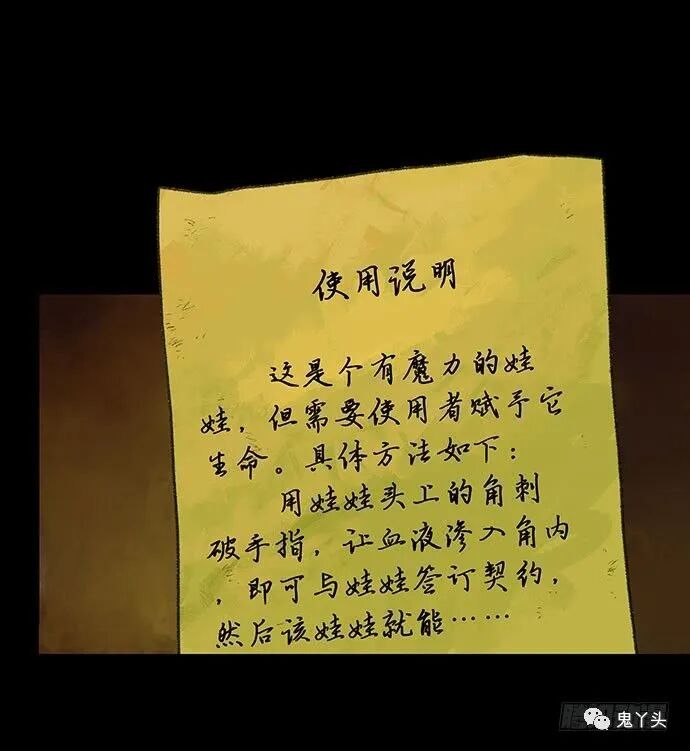 使用说明
这是个有魔力的娃
娃，但需要使用者赋予它
生命。具体方法如下：
用娃娃头上的角刺
破手指，让血液渗入角内
，即可与娃娃签订契约，
然后该娃娃就能……
鬼丫头